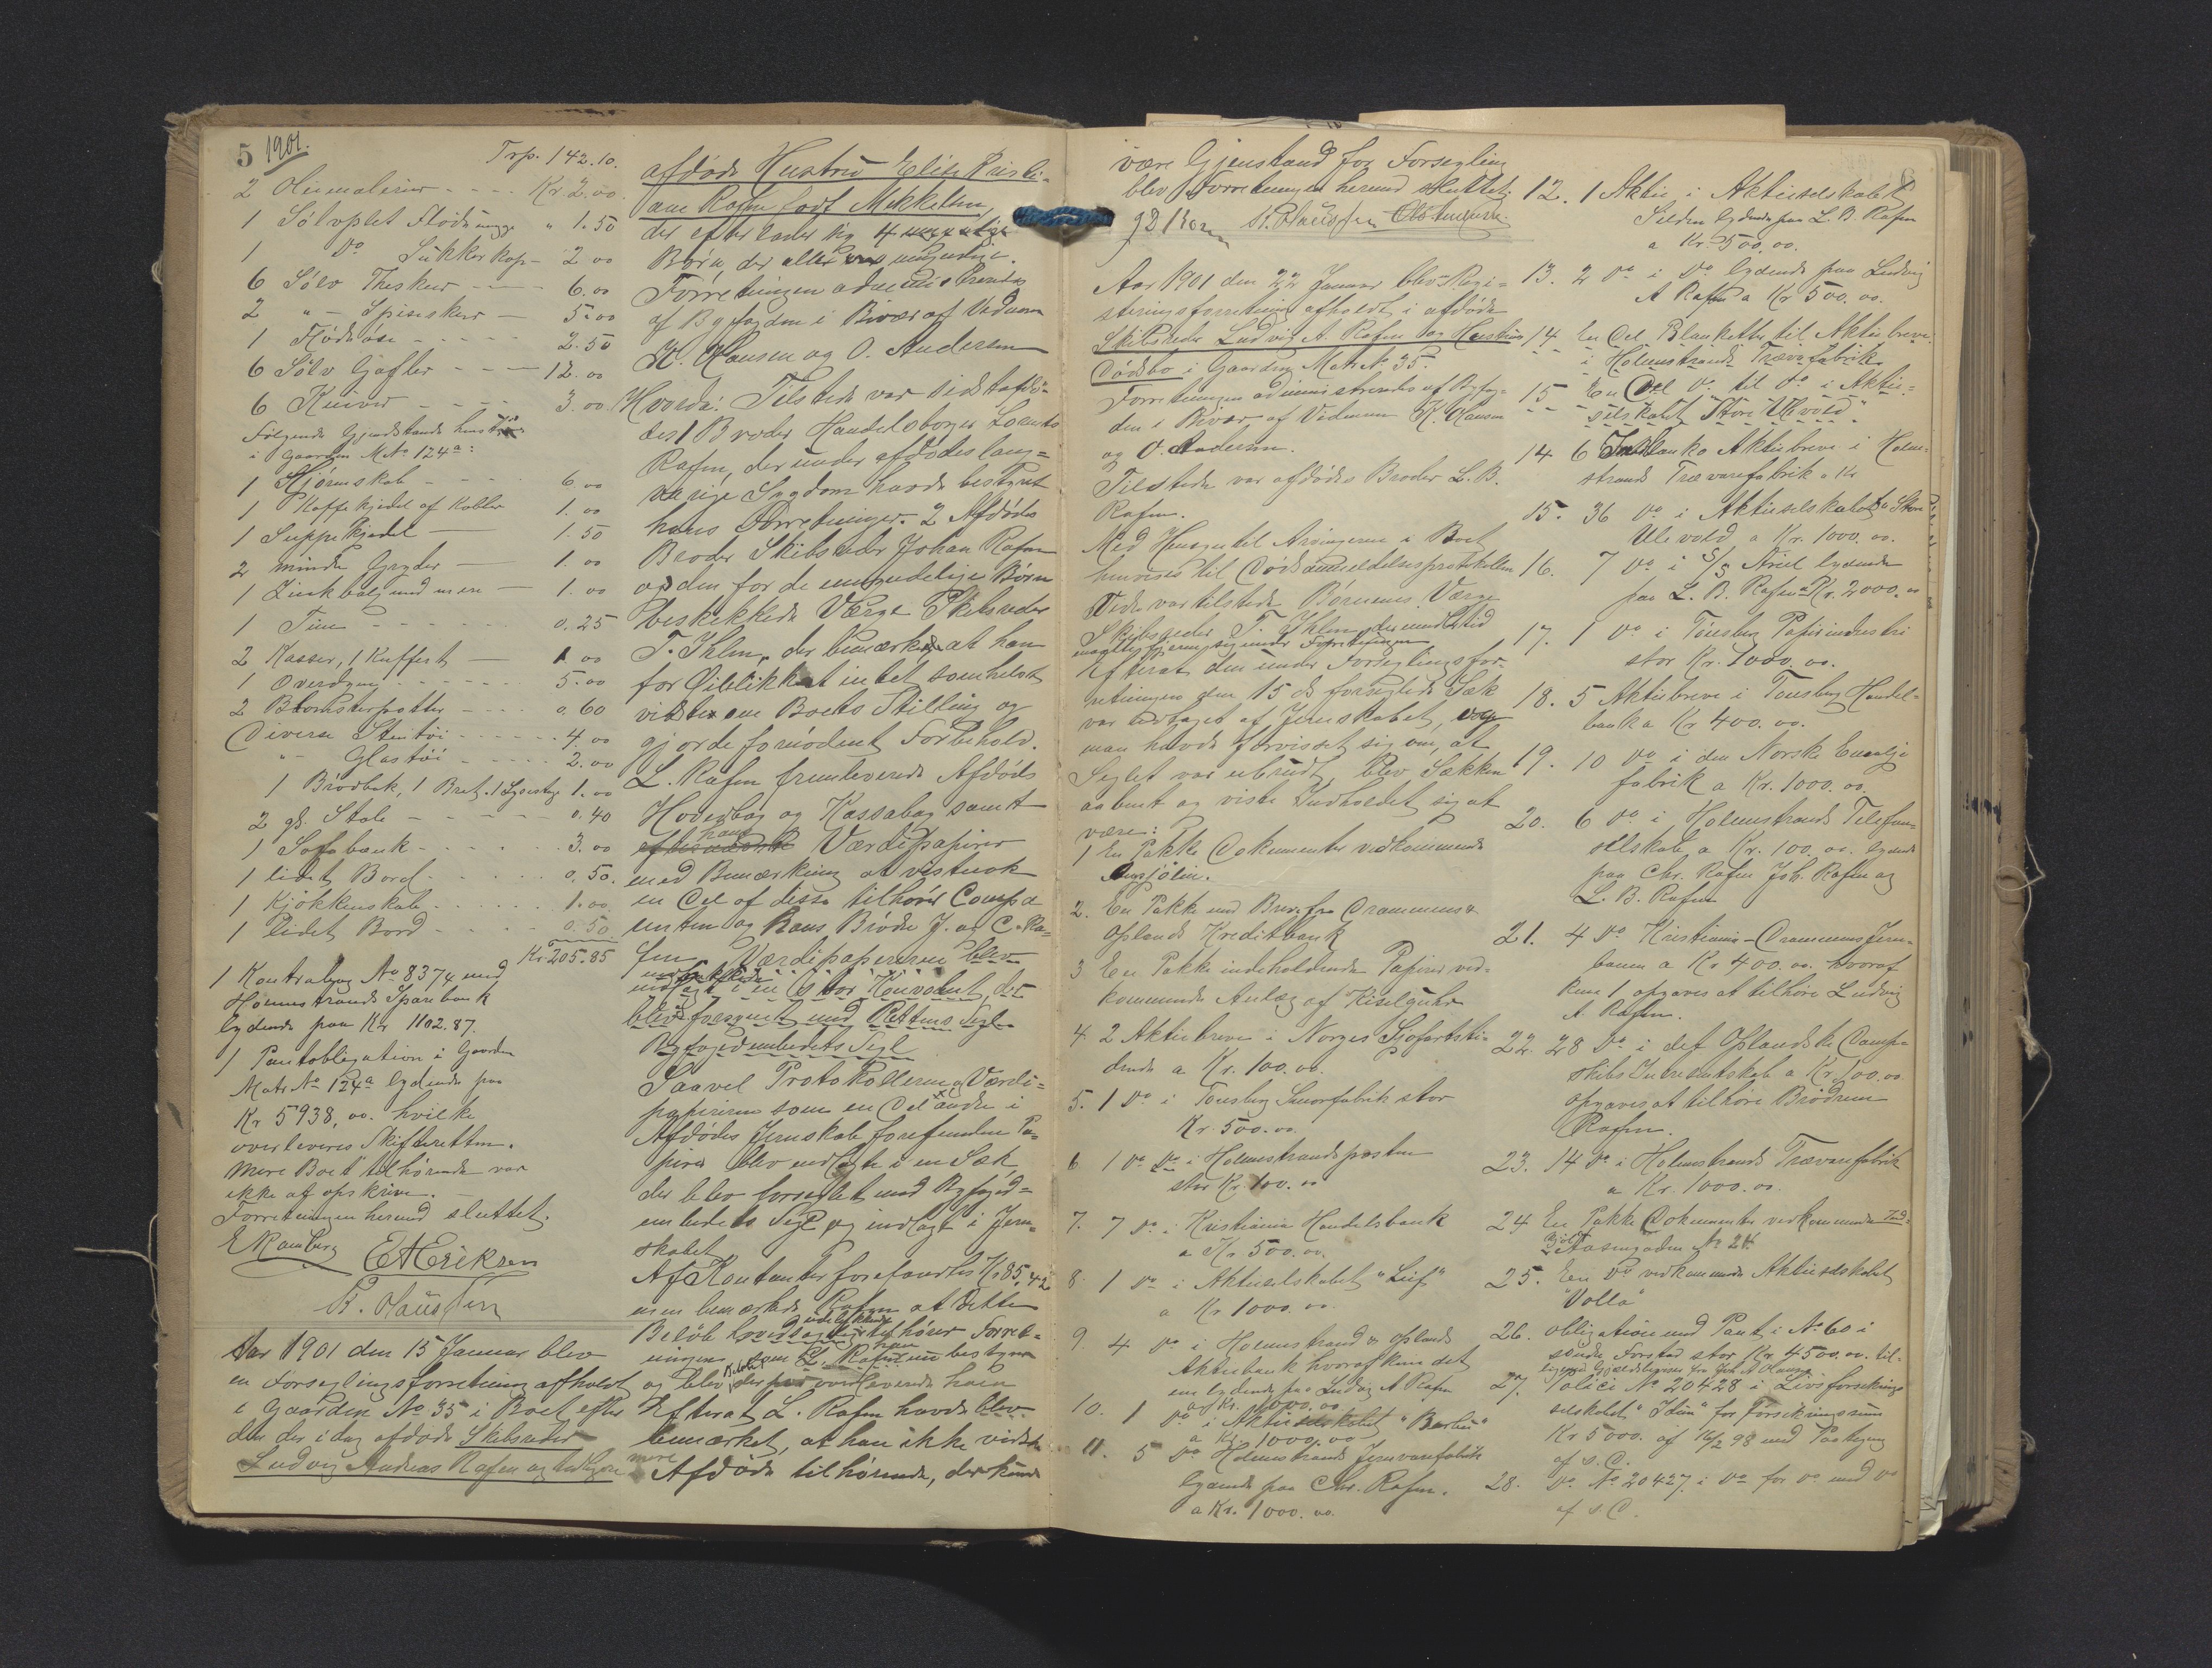 5 1901.
Trp. 142.10.
2 Oliemalerier - - - - Kr. 2.00
1 Sølvplet Flødemugge " 1.50
1 Do Sukkerkop - 2 00
6 Sølv Theskeer - - - 6.00
2 " - Spiseskeer - 5.00
1 Flødeøse - - - - - 2.50
6 Sølv Gafler - - - 12.00
6 Knive - - - - 3.00
Følgende Gjendstande
i Gaarden M No 124a:
1 Hjørneskab - - - - 6.00
1 Kaffekjedel af Kobber 1.00
1 Suppekjedel - 1.50
2 mindre Gryder - 1.00
1 Zinkbalje med mere - 1.00
1 Tine - - - - - - - 0.25
2 Kasser, 1 Kuffert - 1 00
1 Overdyne - - - - - - 5.00
2 Blomsterpotter - - - - 0.60
Diverse Stentøi - - - - - - 4.00
" - Glastøi - - - - - 2.00
1 Brødbak, 1 Bret, 1 Lysestage 1.00
2 gl. Stole - - - - - - 0.40
1 Sofabænk - - - - - - 3.00
1 lidet Bord - - - - - - 0.50.
1 Kjøkkenskab - - - - - - 1.00
1 lidet Bord - - - - - 0.50
Kr. 205.85
1 Kontrabog No 8374 med
Holmestrands Sparebank
lydende paa Kr 1102.87.
1 Pantobligation i Gaarden
Matr No 124a lydende paa
Kr 5938,00. hvilke
overleveres Skifteretten.
Mere Boet tilhørende var
ikke at opskrive. -
Forretningen hermed sluttet.
E Ramberg E A Eriksen
K. Hansen
Aar 1901 den 15 Januar blev
en Forseglingsforretning afholdt
i Gaarden No 35 i Boet efter
den der i dag afdøde Skibsreder
Ludvig Andreas Rafen og tidligere
afdøde Hustru Elise Kristi-
ane Rafen født Mikkelsen,
der efterlader sig 4
Børn, der alle umyndige.
Forretningen administreredes
af Byfogden i Bivær af Vidnerne
K. Hansen og O. Andersen
Hvorda: Tilstede var sidstafdø-
des 1 Broder Handelsborger Lorents
Rafen, der under afdødes lang-
varige Sygdom havde bestyret
hans Forretninger. 2 Afdødes
Broder Skibsreder Johan Rafen
og den for de umyndige Børn
beskikkede Værge Skibsreder
T. Ihlen, der bemærkede at han
for Øieblikket intet somhelst
vidste om Boets Stilling og
gjorde fornødent Forbehold.
L. Rafen fremleverede Afdødes
Hovedbog og Kassabog samt
hans Værdipapirer
med Bemærkning at vistnok
en Del af disse tilhører Compa
enten og hans Brødre J. og C. Ra-
fen. Værdipapirerne blev
indlagt i en stor Konvolut, der
blev forseglet med Rettens Segl.
Byfogedembedets Segl
Saavel Protokollerne og Værdi-
papirerne som en Del andre i
Afdødes Jernskab forefundne Pa-
pirer blev indlagte i en Sæk,
der blev forseglet med Byfoged-
embedets Segl og indlagt i Jern-
skabet
Af Kontanter forefandtes Kr 85.42
men bemærkede Rafen at dette
Beløb udelukkende tilhører Forret-
ningen som han L. Rafen nu bestyrer
og blev Beløbet derfor overleveret ham
Efterat L. Rafen havde blev
bemærket, at han ikke vidste
mere Afdøde tilhørende, der kunde
være Gjenstand for Forsegling
blev Forretningen hermed sluttet.
J D Moren K. Hansen O Andersen
Aar 1901 den 22 Januar blev Regi-
streringsforretning afholdt i afdøde
Skibsreder Ludvig A. Rafen og Hustrus
Dødsbo i Gaarden Matr. No 35.
Forretningen administreredes af Byfog-
den i Bivær af Vidnerne K. Hansen
og O. Andersen.
Tilstede var afdødes Broder L. B.
Rafen.
Med Hensyn til Arvingerne i Boet
henvises til Dødsanmeldelsesprotokollen
Videre var tilstede Børnenes Værge
Skibsreder T. Ihlen, der imidlertid
Efterat den under Forseglingsfor-
retningen den 15 ds forseglede Sæk
var udtaget af Jernskabet, og
man havde forvisset sig om, at
Seglet var ubrudt, blev Sækken
aabnet og viste Indholdet sig at
være:
1 En Pakke Dokumenter vedkommende
2. En Pakke med Breve fra Drammens &
Oplands Kreditbank
3 En Pakke indeholdende Papirer ved-
kommende Anlæg af Kiselguhr
4 2 Aktiebreve i Norges Sjofartsti-
dende a Kr. 100.00.
5. 1 Do i Tønsberg Smørfabrik stor
Kr. 500.00
6 1 Do Do i Holmestrandsposten
stor Kr. 100.00
7. 7 Do i Kristiania Handelsbank
a Kr 500.00.
8. 1 Do i Aktieselskabet "Leif"
a Kr 1000.00
9. 4 Do i Holmestrand & Oplands
Aktiebank hvoraf kun det
ene lydende paa Ludvig A Rafen
a Kr. 1000.00
10. 1 Do i Aktieselskabet "Berlin"
a Kr. 1000.00
11. 5 Do Holmestrands Jernvarefabrik
lydende paa Chr. Rafen.
a Kr. 1000.00.
12. 1 Aktie i Aktieselskabet
Silden lydende paa L. B. Rafen
a Kr. 500.00.
13. 2 Do i Do lydende paa Ludvig
A Rafen a Kr 500.00.
14 En Del Blanketter til Aktiebreve
i Holmestrands Trævarefabrik.
15 En Del Do til Do i Aktie-
selskabet Store Ulevold".
14. 6 Inblanko Aktiebreve i Holme-
strands Trævarefabrik a Kr
15. 36 Do i Aktieselskabet Store
Ulevold a Kr. 1000.00.
16. 7 Do i S/S Ariel lydende
paa L. B. Rafen a Kr. 2000.00
17. 1 Do i Tønsberg Papirindustri
stor Kr. 1000.00.
18. 5 Aktiebreve i Tønsberg Handels-
bank a Kr 400.00.
19. 10 Do i den Norske Emalje
fabrik a Kr. 1000.00.
20. 6 Do i Holmestrands Telefon-
selskab a Kr. 100.00. lydende
paa Chr. Rafen Joh. Rafen og
L. B. Rafen
21. 4 Do Kristiania-Drammens Jern-
banen a Kr 400.00. hvoraf
kun 1 opgaves at tilhøre Ludvig
A. Rafen.
22. 28 Do i det Oplandske Damp-
skibs Interessentskab a Kr. 100.00
opgaves at tilhøre Brødrene
Rafen.
23. 14 Do i Holmestrands Trævarefabrik
a Kr. 1000.00.
24 En Pakke Dokumenter vedkommende
Aasengaden No 24.
25. En Do vedkommende Aktieselskabet
"Volla"
26. Obligation med Pant i No 60 i
søndre Forstad stor Kr. 4500.00. til-
ligemed Gjældsbeviser fra Joh. A Olsen
27. Polici No 20428 i Livsforsikrings
selskabet "Idun" for Forsikringssum
Kr 5000. af 16/2 98 med Paategning
af s. C.
28. Do No 20427 i Do for Do med Do
af s C.